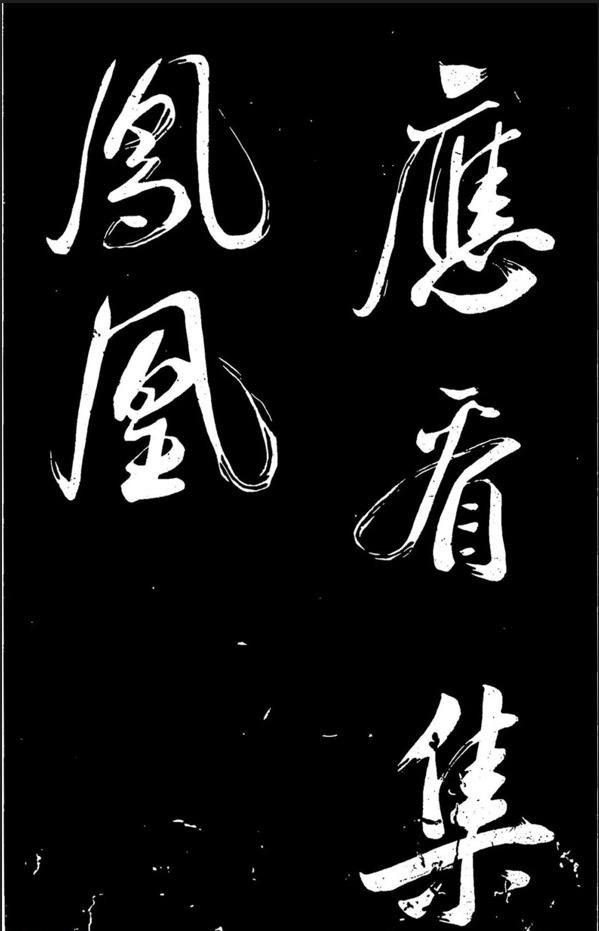 應看集
鳳凰